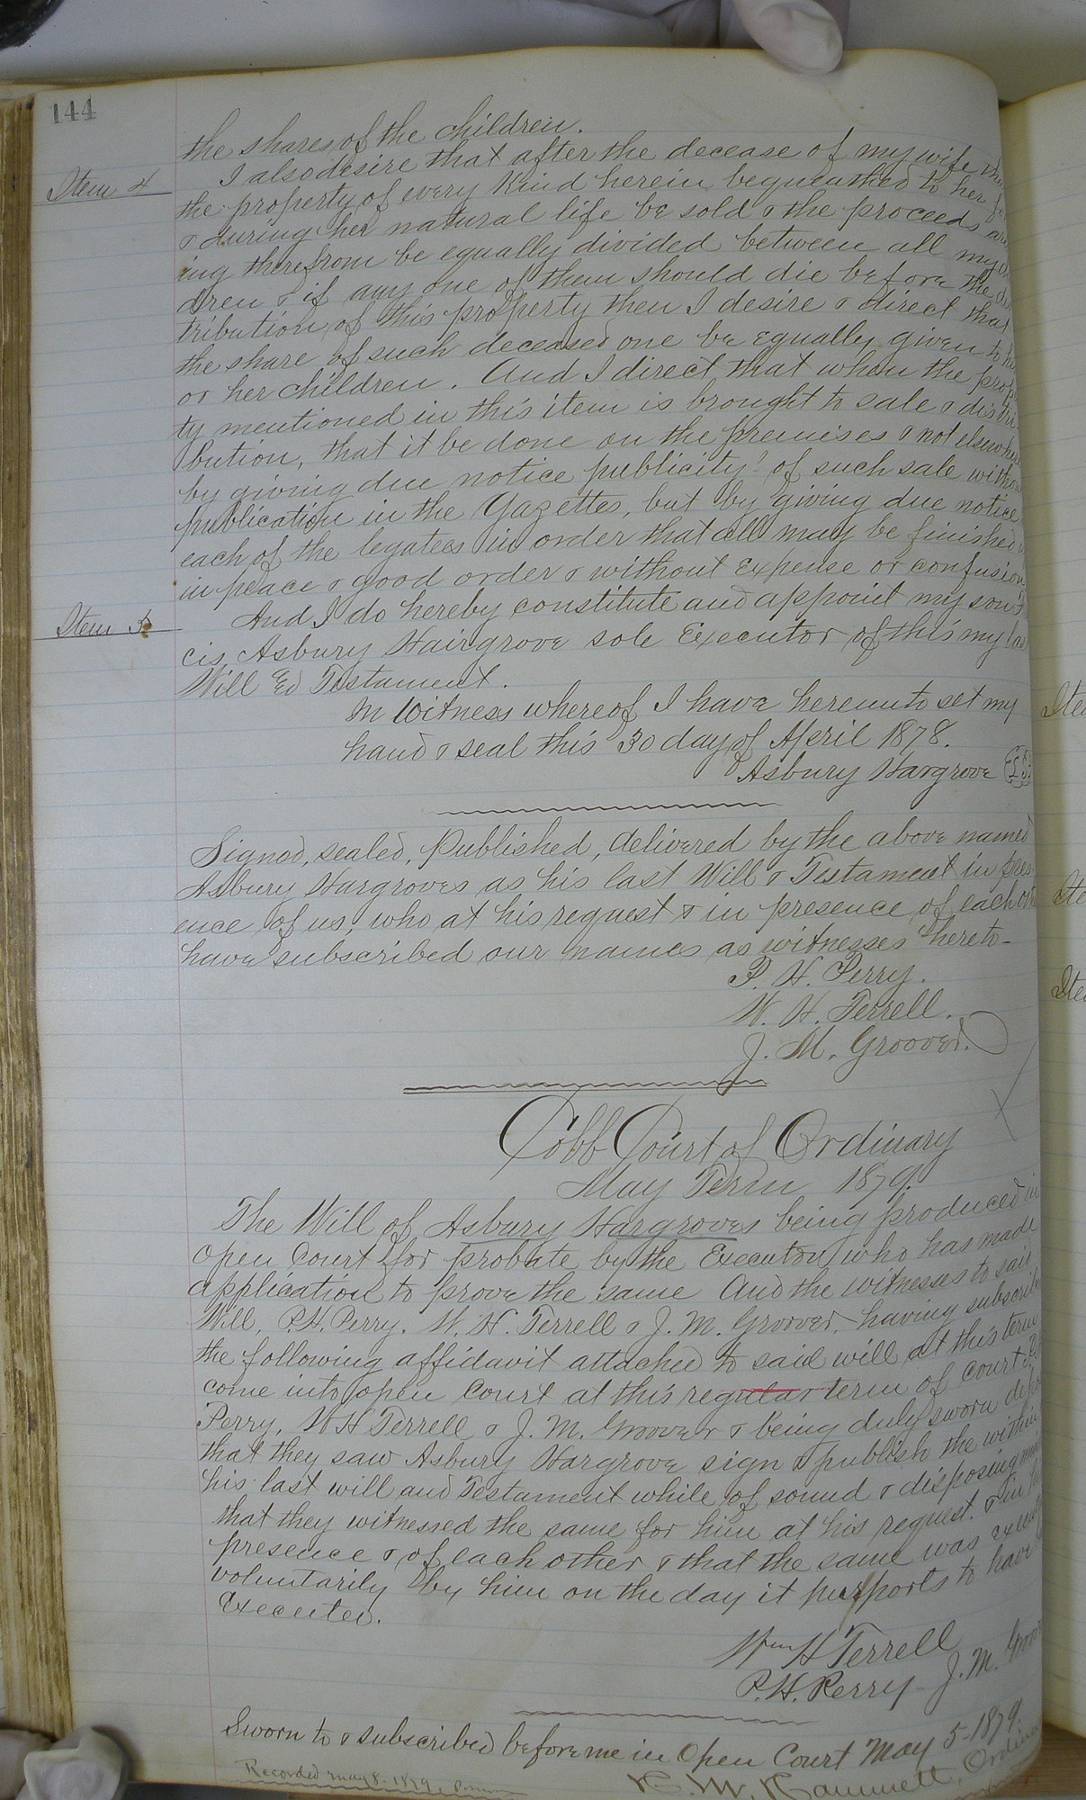 144
the shares of the children.
Item 4
I also desire that after the decease of my wife
the property of every kind herein bequeathed to her
& during her natural life be sold & the proceeds
ing therefrom be equally divided between all my
dren & if any one of them should die before the
tribution of this property then I desire & direct that
the share of such deceased one be equally given to
or her children. And I direct that when the prop
ty mentioned in this item is brought to sale & distri
bution, that it be done on the premises & not
by giving due notice publicity of such sale
publication in the Gazettes, but by giving due notice
each of the legatees in order that all may be finished
in peace & good order & without expense or confusion
Item 5
And I do hereby constitute and appoint my son
cis Asbury Hairgrove sole Executor of this my
Will and Testament.
In Witness whereof I have hereunto set my
hand & seal this 30 day of April 1878.
Asbury Hargrove L.S.
Signed, sealed, Published, delivered by the above named
Asbury Hargroves as his last Will & Testament in pres
ence of us, who at his request & in presence of each
have subscribed our names as witnesses hereto-
P. H. Perry.
W. H. Terrell.
J. M. Groover.
Cobb Court of Ordinary
May Term 1879.
The Will of Asbury Hargroves being produced in
open Court for probate by the Executor, who has made
application to prove the same And the witnesses to said
Will, P.H. Perry. W. H. Terrell & J. M. Groover having
the following affidavit attached to said will at this term
come into open Court at this regular term of court
Perry, W H Terrell & J. M. Groover & being duly sworn
that they saw Asbury Hargrove sign & publish the within
his last will and Testament while of sound & disposing
that they witnessed the same for him at his request. & in
presence & of each other & that the same was
voluntarily by him on the day it purports to have
Executed.
Wm H Terrell
P. H. Perry J. M.
Sworn to & subscribed before me in Open Court May 5 1879.
Recorded May 8. 1879.
Item